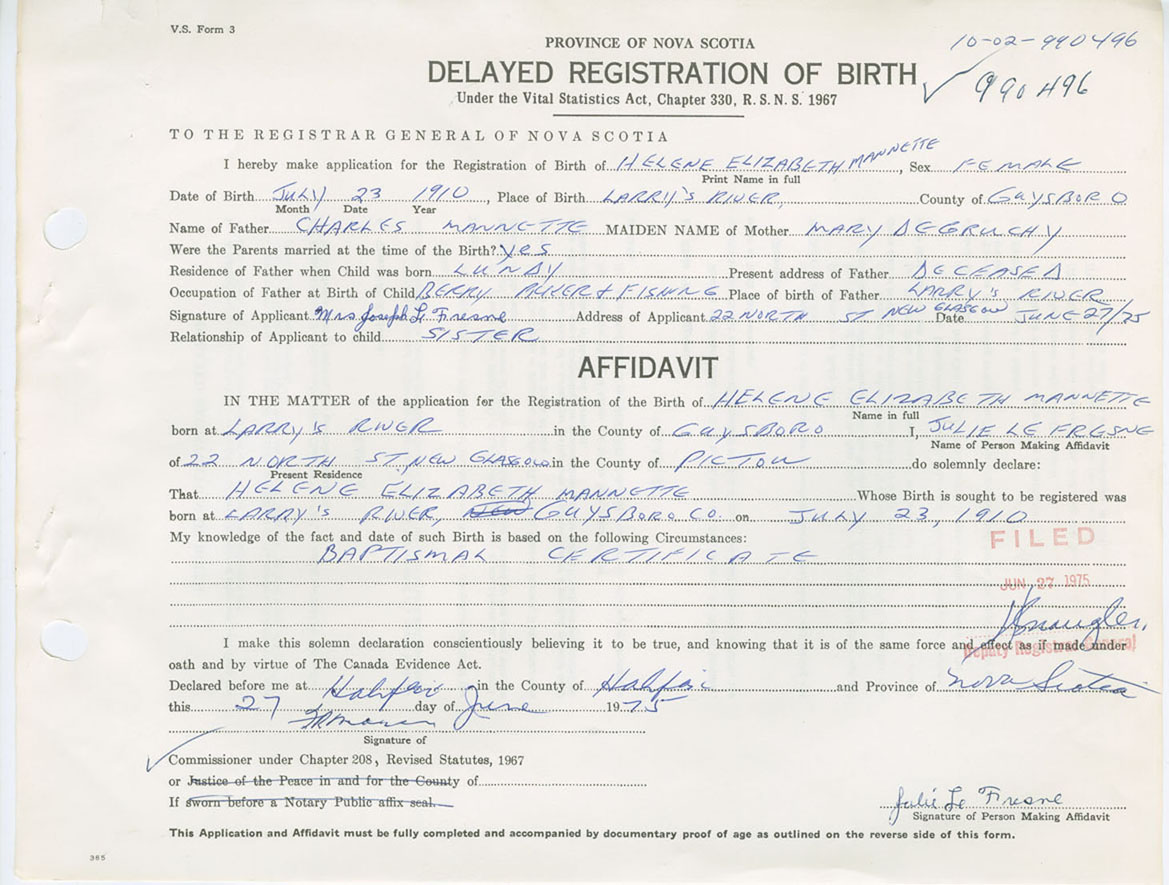 V.S. Form 3
10-02-990496
PROVINCE OF NOVA SCOTIA
DELAYED REGISTRATION OF BIRTH
990496
Under the Vital Statistics Act, Chapter 330, R. S. N. S. 1967
TO THE REGISTRAR GENERAL OF NOVA SCOTIA
I hereby make application for the Registration of Birth of HELENE ELIZABETH MANNETTE, Sex FEMALE
Print Name in full
Date of Birth JULY 23 1910, Place of Birth LARRY'S RIVER, County of GUYSBORO
Month Date Year
Name of Father CHARLES MANNETTE MAIDEN NAME of Mother MARY DEGRUCHY
Were the Parents married at the time of the Birth? yes
Residence of Father when Child was born LUNDY Present address of Father DECEASED
Occupation of Father at Birth of Child BERRY PICKER & FISHING Place of birth of Father LARRY'S RIVER
Signature of Applicant Mrs Joseph Le Fresne Address of Applicant 22 NORTH ST NEW GLASGOW Date JUNE 27/75
Relationship of Applicant to child SISTER
AFFIDAVIT
IN THE MATTER of the application for the Registration of the Birth of HELENE ELIZABETH MANNETTE
Name in full
born at LARRY'S RIVER in the County of GUYSBORO I, JULIE LE FRESNE
Name of Person Making Affidavit
of 22 NORTH ST, NEW GLASGOW in the County of PICTOU do solemnly declare:
Present Residence
That HELENE ELIZABETH MANNETTE Whose Birth is sought to be registered was
born at LARRY'S RIVER, GUYSBORO CO. on JULY 23, 1910
My knowledge of the fact and date of such Birth is based on the following Circumstances:
BAPTISMAL CERTIFICATE
FILED
JUN 27 1975
Deputy Registrar General
I make this solemn declaration conscientiously believing it to be true, and knowing that it is of the same force and effect as if made under
oath and by virtue of The Canada Evidence Act.
Declared before me at Halifax in the County of Halifax and Province of Nova Scotia
this 27 day of June 1975
Signature of
Commissioner under Chapter 208, Revised Statutes, 1967
or Justice of the Peace in and for the County of
If sworn before a Notary Public affix seal.
Julie Le Fresne
Signature of Person Making Affidavit
This Application and Affidavit must be fully completed and accompanied by documentary proof of age as outlined on the reverse side of this form.
365